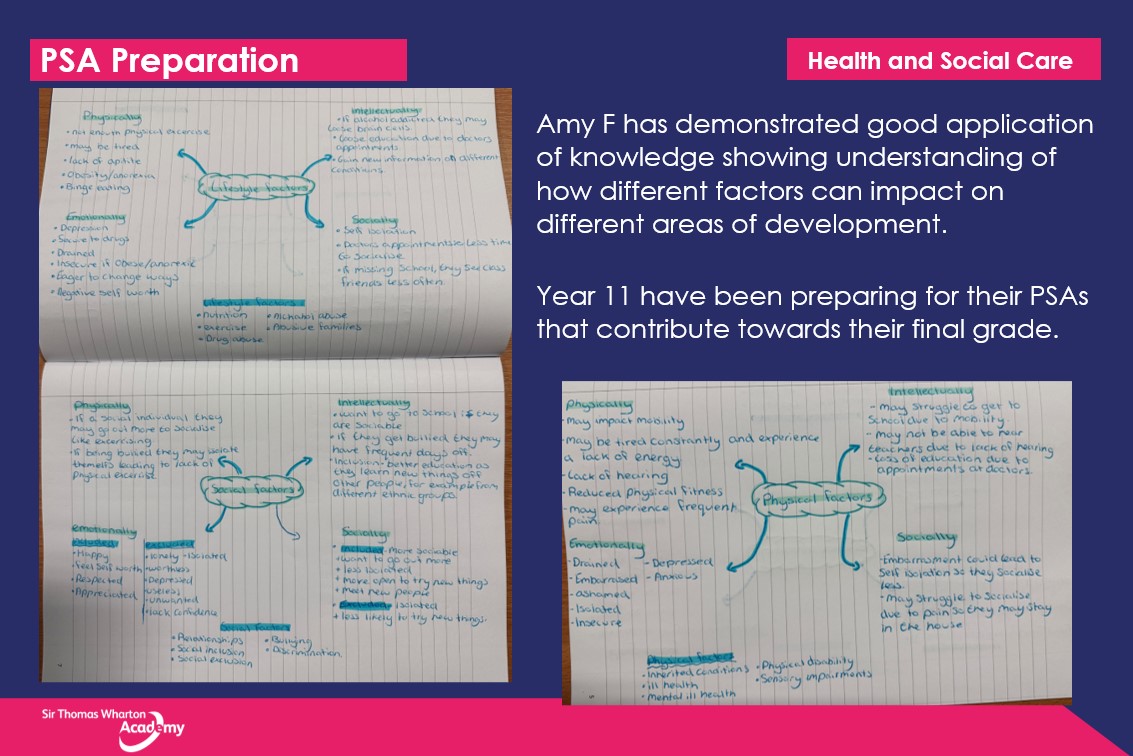 PSA Preparation
Health and Social Care
Amy F has demonstrated good application
of knowledge showing understanding of
how different factors can impact on
different areas of development.
Year 11 have been preparing for their PSAs
that contribute towards their final grade.
Physically
• not enough physical excercise
• may be tired
• lack of
• Obesity/anorexia
• Binge eating
Intellectually
• If alcohol addicted they may
loose brain cells
• Loose education due to doctors
appointments
• Gain new information on different
conditions.
Lifestyle factors
Emotionally
• Depression
• to drugs
• Drained
• Insecure if Obese/anorexic
• Eager to change ways
• Negative self worth
Socially
• Self isolation
• Doctors appointments = Less time
to socialise
• If missing school, they see
friends less often.
Lifestyle factors
• Nutrition
• exercise
• Drug abuse
• Alchohol abuse
• Abusive families
Physically
• if a social individual they
may go out more to socialise
like excercising
• if being bullied they may isolate
leading to lack of
physical
Intellectually
• want to go to school if they
are sociable
• if they get bullied they may
have frequent days off.
• Inclusion - better education as
they learn new things off
other people, for example from
different ethnic groups.
Social factors
emotionally
• Happy
• feel self worth
• Respected
• Appreciated
• lonely - Isolated
• worthless
• Depressed
useless
• unwanted
• lack confidence
Socially
• Included - more sociable
• want to go out more
• less isolated
• more open to try new things
• meet new people
• Excluded - isolated
• less likely to try new things.
Social factors
• Relationships
• Social inclusion
• Social exclusion
• Bullying
• Discrimination
Physically
- May impact mobility
- may be tired constantly and experience
a lack of energy
- Lack of hearing
- Reduced physical fitness
- may experience frequent
pain.
Intellectually
- may struggle to get to
School due to mobility
- may not be able to hear
teachers due to lack of hearing
- Loss of education due to
appointments at doctors.
Physical factors
Emotionally
- Drained
- Embarrised
- ashamed
- Isolated
- Insecure
- Depressed
- Anxious
Socially
- Embarrasment could lead to
self isolation so they socialise
less.
• may Struggle to Socialise
due to pain so they may stay
in the house
Physical factors
• Inherited conditions
• ill health
• mental ill health
• Physical disability
• Sensory impairments
Sir Thomas Wharton
Academy